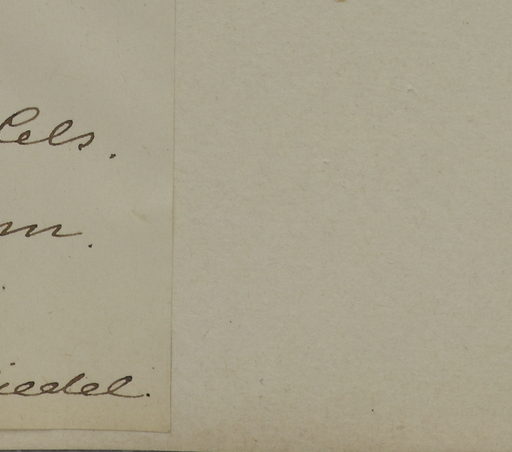 Cels.
m.
.
iedel.